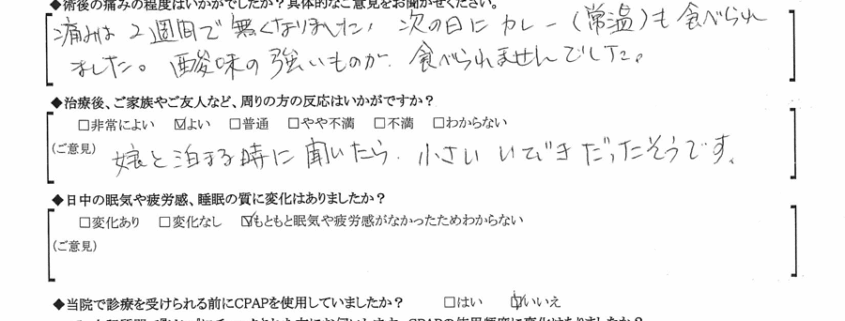 ◆術後の痛みの程度はいかがでしたか？具体的なご意見をお聞かせください。
痛みは2週間で無くなりました, 次の日にカレー(常温)も食べられ
ました。酸味の強いものが 食べられませんでした。
◆治療後、ご家族やご友人など、周りの方の反応はいかがですか？
□非常によい ☑よい □普通 □やや不満 □不満 □わからない
(ご意見) 娘と泊まる時に聞いたら, 小さい いびきだったそうです。
◆日中の眠気や疲労感、睡眠の質に変化はありましたか？
□変化あり □変化なし ☑もともと眠気や疲労感がなかったためわからない
(ご意見)
◆当院で診療を受けられる前にCPAPを使用していましたか？ □はい ☑いいえ